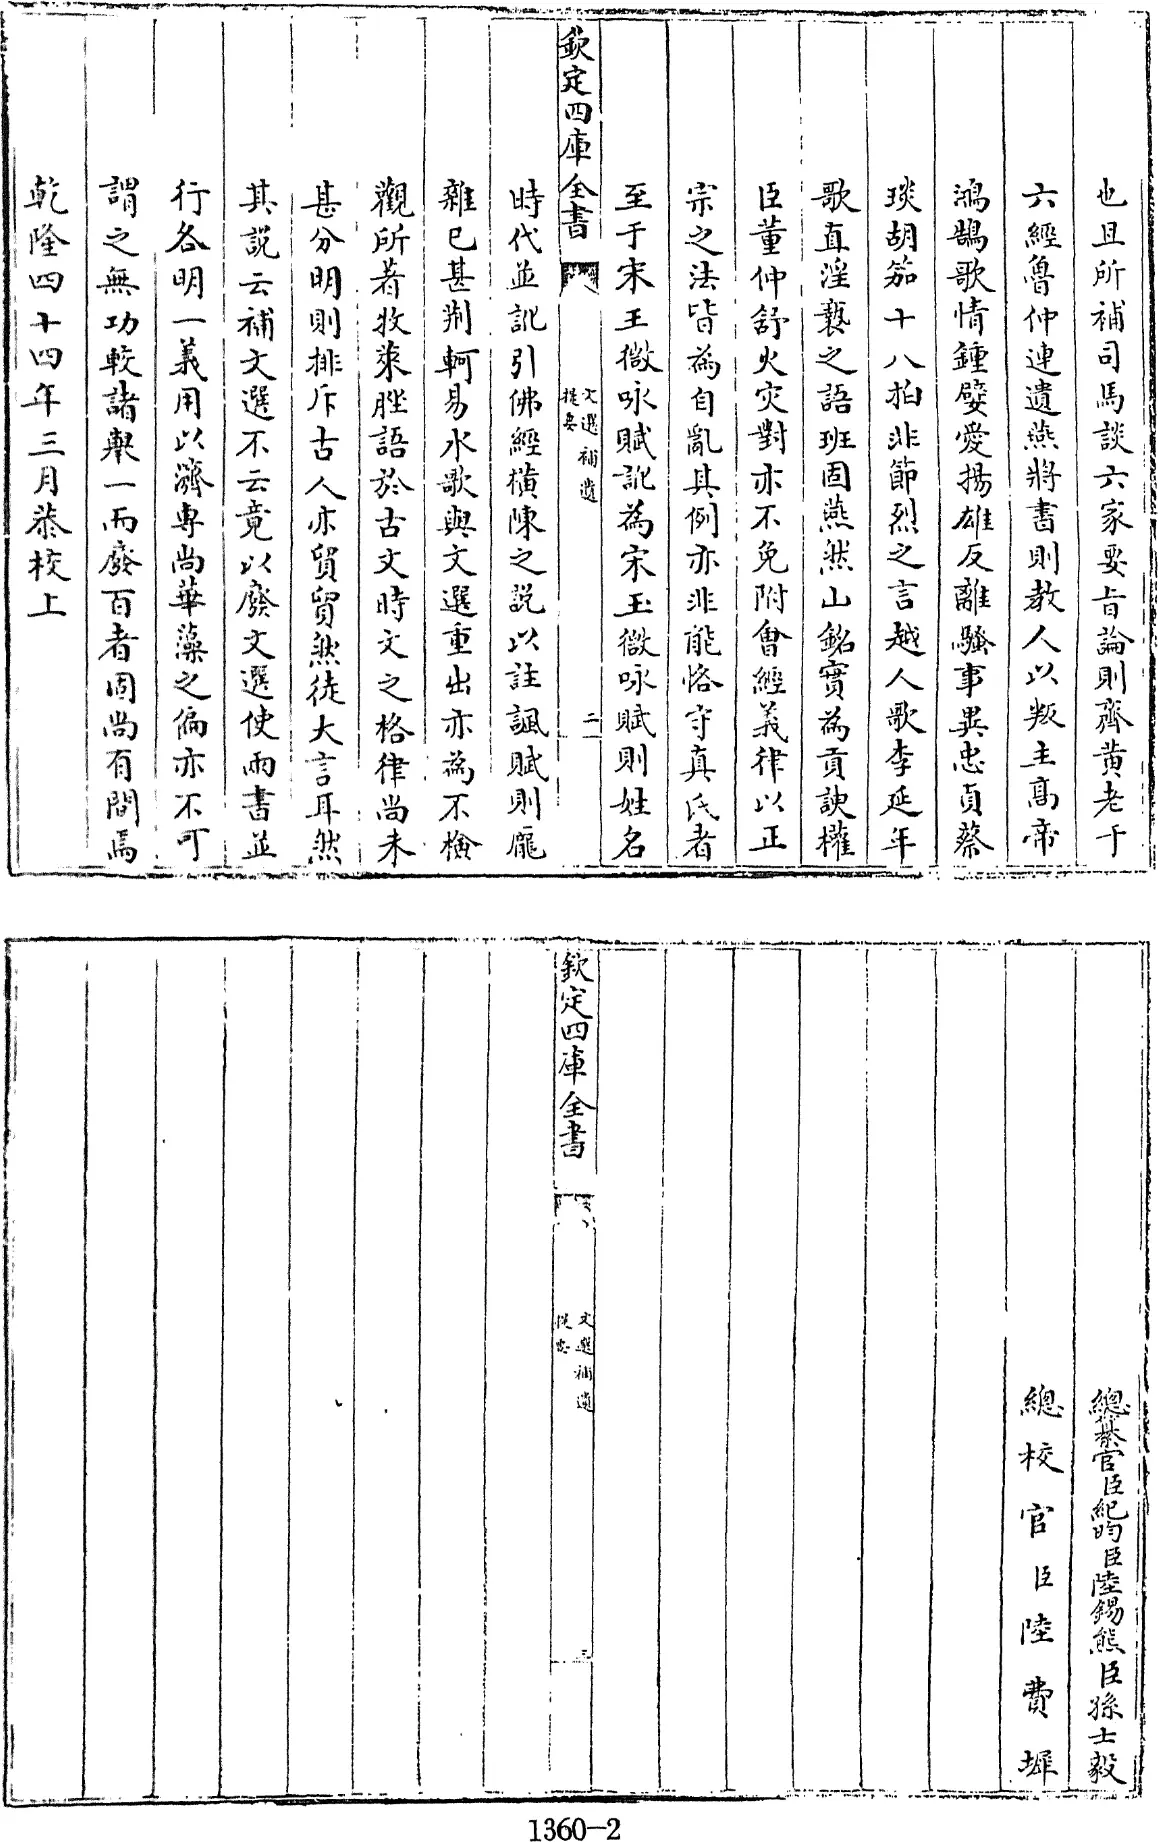 也且所補司馬談六家要旨論則齊黃老于
六經魯仲連遺燕將書則教人以叛主高帝
鴻鵠歌情鍾嬖愛揚雄反離騷事異忠貞蔡
琰胡笳十八拍非節烈之言越人歌李延年
歌直淫褻之語班固燕然山銘實為貢諛權
臣董仲舒火灾對亦不免附會經義律以正
宗之法皆為自亂其例亦非能恪守真氏者
至于宋王微咏賦訛為宋玉微咏賦則姓名
欽定四庫全書
文選補遺
提要
二
時代並訛引佛經橫陳之説以註諷賦則龐
雜已甚荆軻易水歌與文選重出亦為不檢
觀所著牧萊脞語於古文時文之格律尚未
甚分明則排斥古人亦貿貿然徒大言耳然
其説云補文選不云竟以廢文選使兩書並
行各明一義用以濟專尚華藻之偏亦不可
謂之無功較諸舉一而廢百者固尚有間焉
乾隆四十四年三月恭校上
總纂官臣紀昀臣陸錫熊臣孫士毅
總校官臣陸費墀
欽定四庫全書
文選補遺
提要
三
1360-2